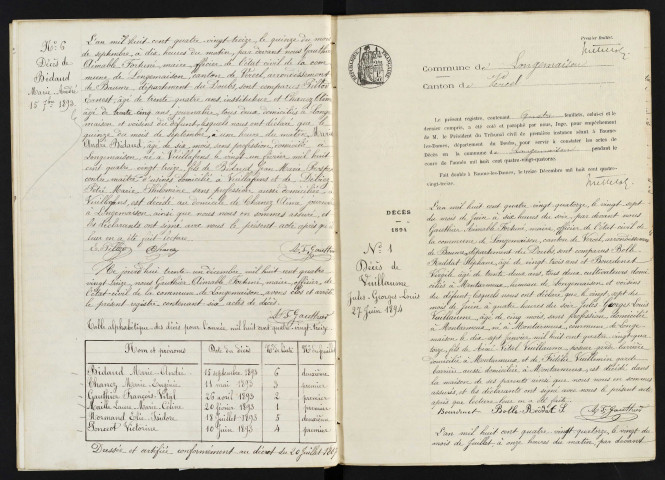 No 6
Décès de
Bidaud
Marie André
15 7bre 1893
L'an mil huit cent quatre vingt-treize le quinze du mois
de septembre, à dix heures du matin, par devant nous Gauthier
Aimable Fortuné, maire, officier de l'état civil de la com
mune de Longemaison, canton de Vercel, arrondissement
de Baume, département du Doubs, sont comparus
Ernest, âgé de trente quatre ans instituteur et Chanez Elina
âgé de trente cinq ans, journalier, tous deux domiciliés à Longe
maison et voisins du défunt, lesquels nous ont déclaré que le
quinze du mois de septembre, à une heure du matin Marie
André Bidaud, âgé de six mois, sans profession, domicilié à
Longemaison, né à Vuillafans le vingt un février mil huit
cent quatre vingt treize, fils de Bidaud Jean Marie
domicilié à Vuillafans et de
Marie Philomène sans profession aussi domiciliée à
Vuillafans, est décédé au domicile de Chanez Elina journalier
à Longemaison ainsi que nous nous en sommes assuré, et
les déclarants ont signé avec nous le présent acte après que
leur en a été fait lecture.
Chanez A. F. Gauthier
Ce jourd'hui trente un décembre, mil huit cent quatre
vingt treize, nous Gauthier Aimable Fortuné, maire, officier de
l'état-civil de la commune de Longemaison, avons clos et arrêté
le présent registre contenant six actes de décès.
A. F. Gauthier
Table alphabétique des décès pour l'année mil huit cent quatre vingt treize.
Nom et prénoms Date du décès No de l'acte No du feuillet
Bidaud Marie André 15 septembre 1893 6 deuxième
Chanez Marie Eugénie 11 mai 1893 3 premier
Gauthier François Vital 26 avril 1893 2 premier
Maille Laure Marie Céline 20 février 1893 1 premier
Normand Elie Isidore 18 juillet 1893 5 deuxième
Poncot Victorine 10 juin 1893 4 premier
Dressée et certifiée conformément au décret du 20 juillet 1807
Premier feuillet
RÉPUBLIQUE FRANÇAISE
Commune de Longemaison
Canton de Vercel
Le présent registre, contenant quatre feuillets, celui-ci et le
dernier compris, a été coté et paraphé par nous, Juge, pour empêchement
de M. le Président du Tribunal civil de première instance séant à Baume-
les-Dames, département du Doubs, pour servir à constater les actes de
Décès en la commune de Longemaison pendant le
cours de l'année mil huit cent quatre-vingt-quatorze.
Fait double à Baume-les-Dames, le treize Décembre mil huit cent quatre-
vingt-treize.
DÉCÈS
1894
No 1
Décès de
Vuillaume
Jules-Georges Louis
27 juin 1894
L'an mil huit cent quatre vingt quatorze, le vingt sept
du mois de juin, à six heures du soir, par devant nous
Gauthier Aimable Fortuné, maire, officier de l'état civil de
la commune de Longemaison, canton de Vercel, arrondissement
de Baume, département du Doubs, sont comparus Bolle-
Reddat Stéphane, âgé de vingt six ans et Bourdenet
Virgile, âgé de trente deux ans, tous deux cultivateurs domi
ciliés à Montarmots, commune de Longemaison et voisins
du défunt, lesquels nous ont déclaré que le vingt sept du
mois de juin, à quatre heures du soir Jules Georges Louis
Vuillaume, âgé de cinq mois, sans profession, domicilié
à Montarmots, né à Montarmots, commune de Longe-
maison, le vingt janvier mil huit cent quatre vingt quator-
ze, fils de Vuillaume garde barrière
domicilié à Montarmots et de Vuillemin garde-
barrière aussi domiciliée à Montarmots, est décédé dans
la maison de ses parents ainsi que nous nous en sommes
assurés, et les déclarants ont signé avec nous le présent acte
après que lecture leur en a été faite.
Bourdenet Bolle Reddat S. A. F. Gauthier
L'an mil huit cent quatre-vingt-quatorze, le vingt du
mois de juillet à onze heures du matin par devant